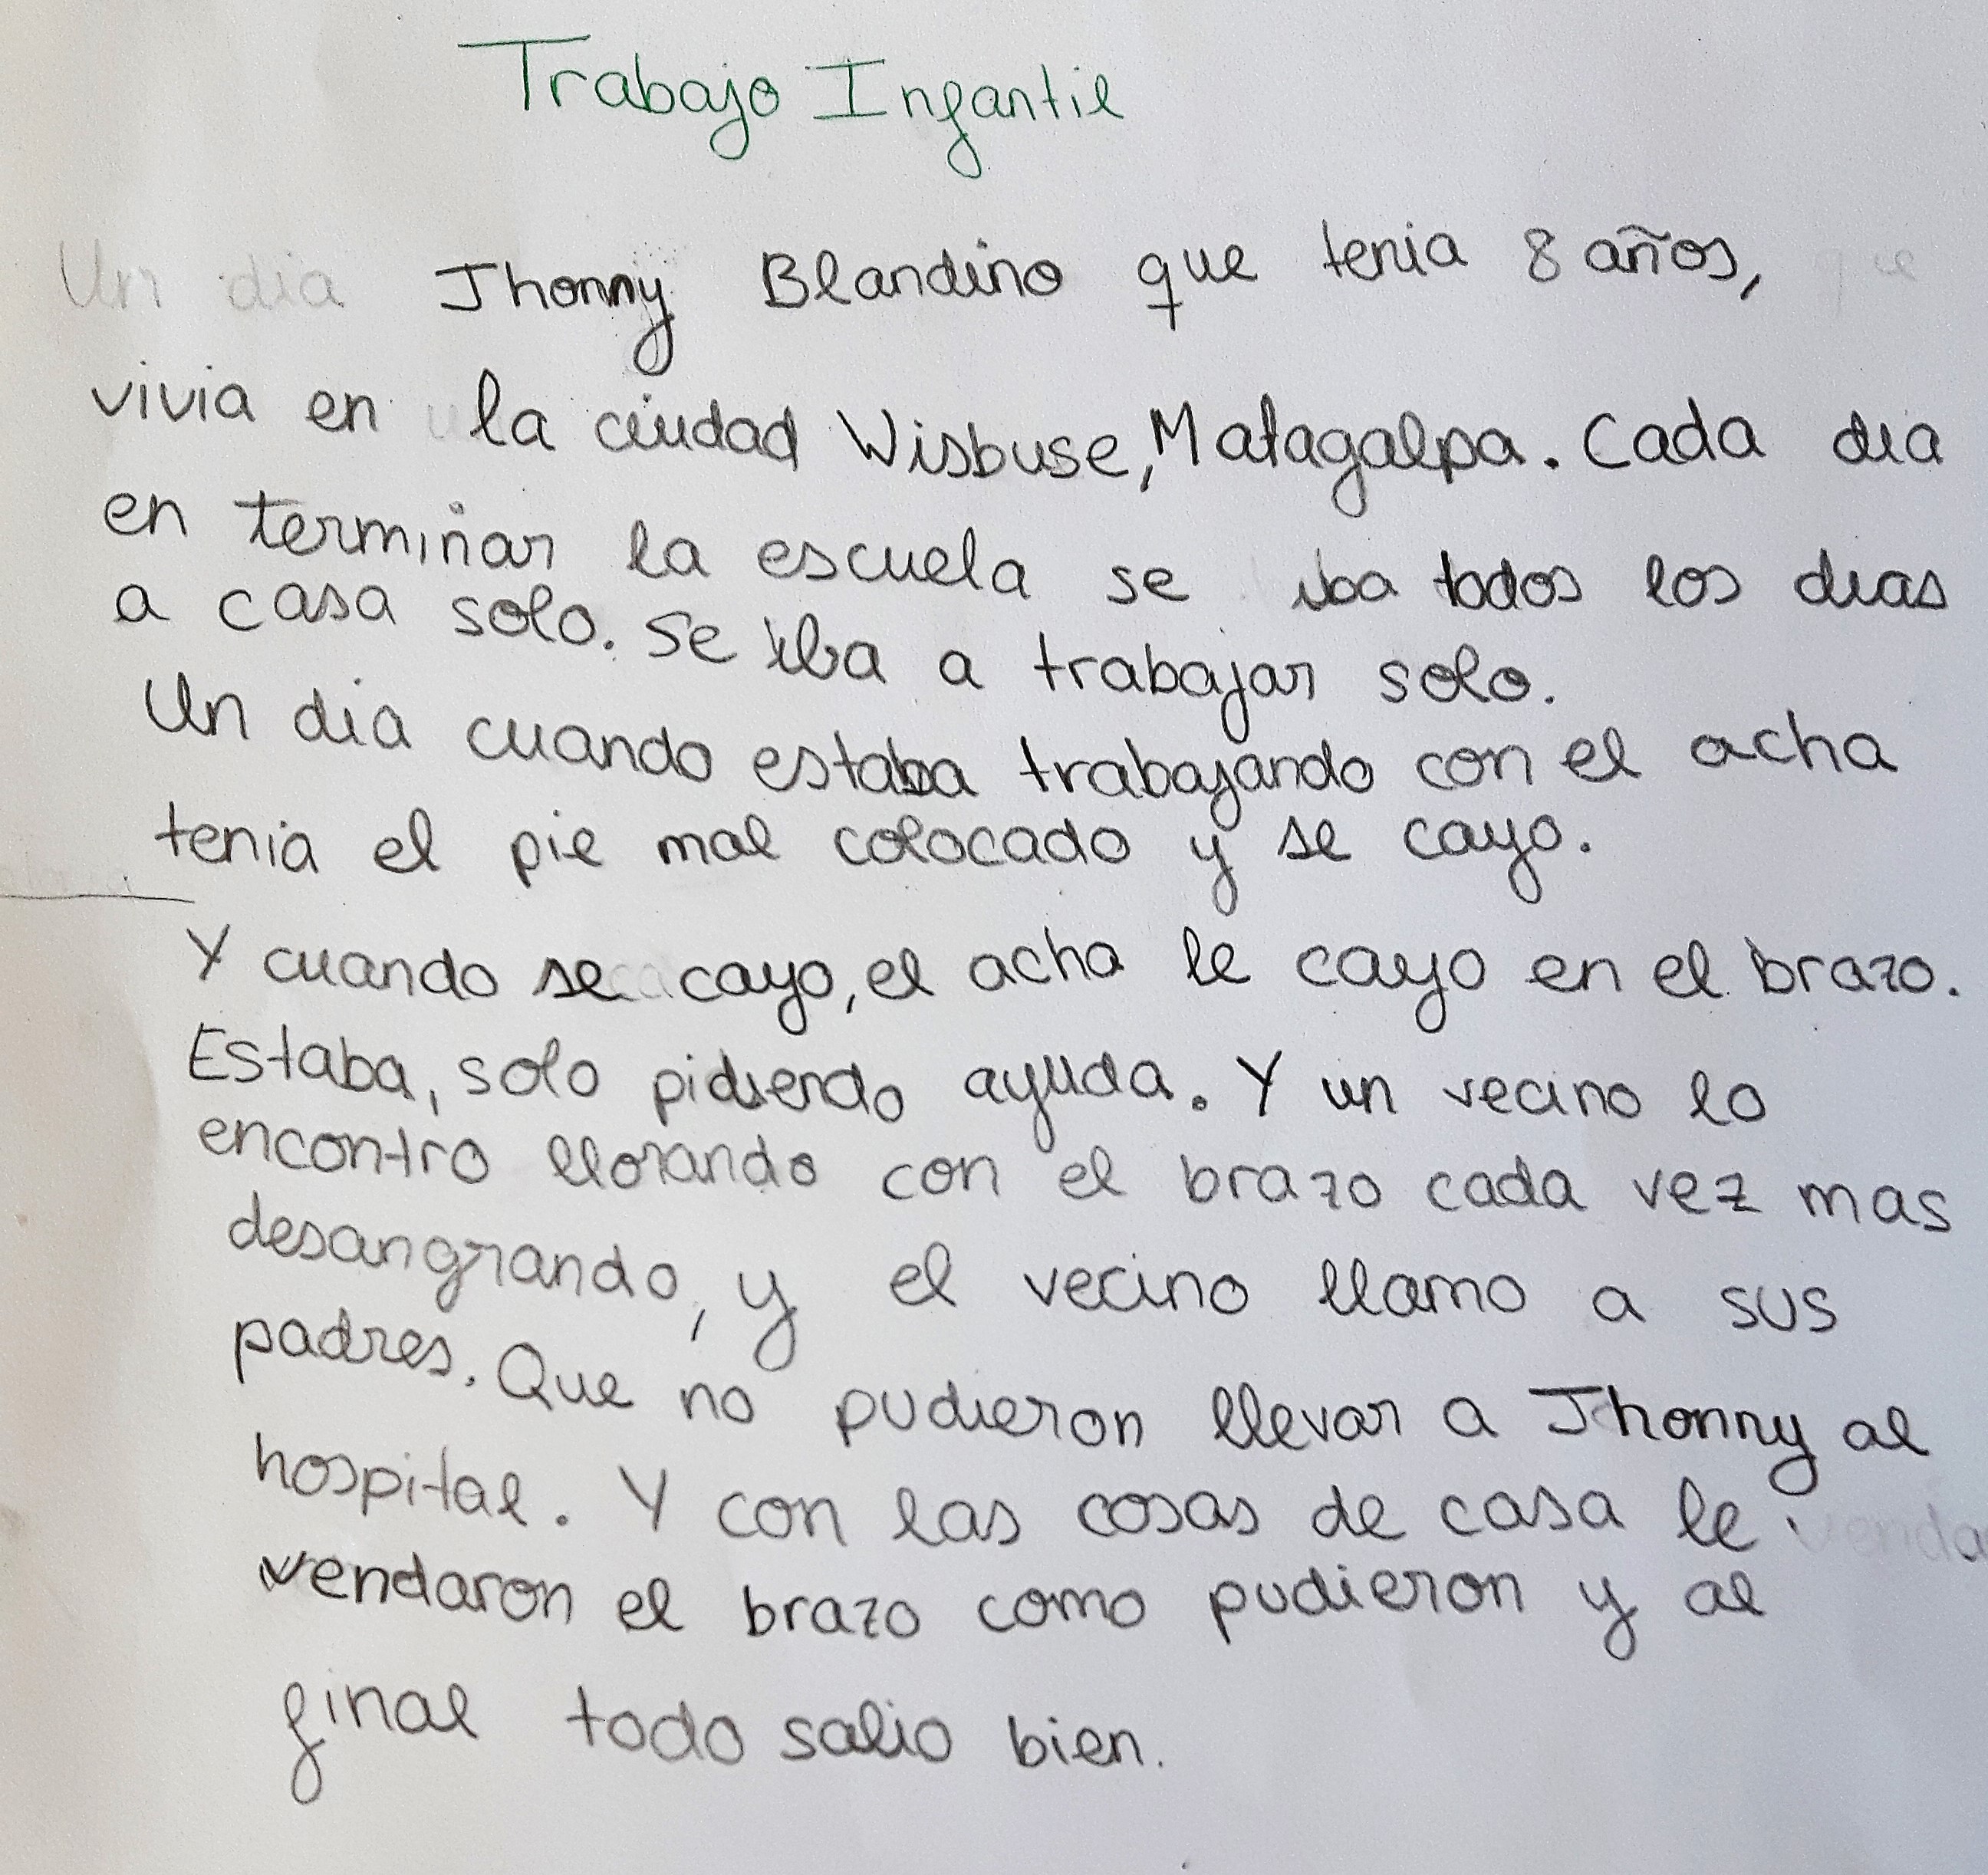 Trabajo Infantil
Un dia Jhonny Blandino que tenia 8 años, que
vivia en la ciudad Wisbuse, Matagalpa. Cada dia
en terminar la escuela se iba todos los dias
a casa solo. Se iba a trabajar solo.
Un dia cuando estaba trabajando con el acha
tenia el pie mal colocado y se cayo.
Y cuando se cayo, el acha le cayo en el brazo.
Estaba, solo pidiendo ayuda. Y un vecino lo
encontro llorando con el brazo cada vez mas
desangrando, y el vecino llamo a sus
padres. Que no pudieron llevar a Jhonny al
hospital. Y con las cosas de casa le venda
vendaron el brazo como pudieron y al
final todo salio bien.